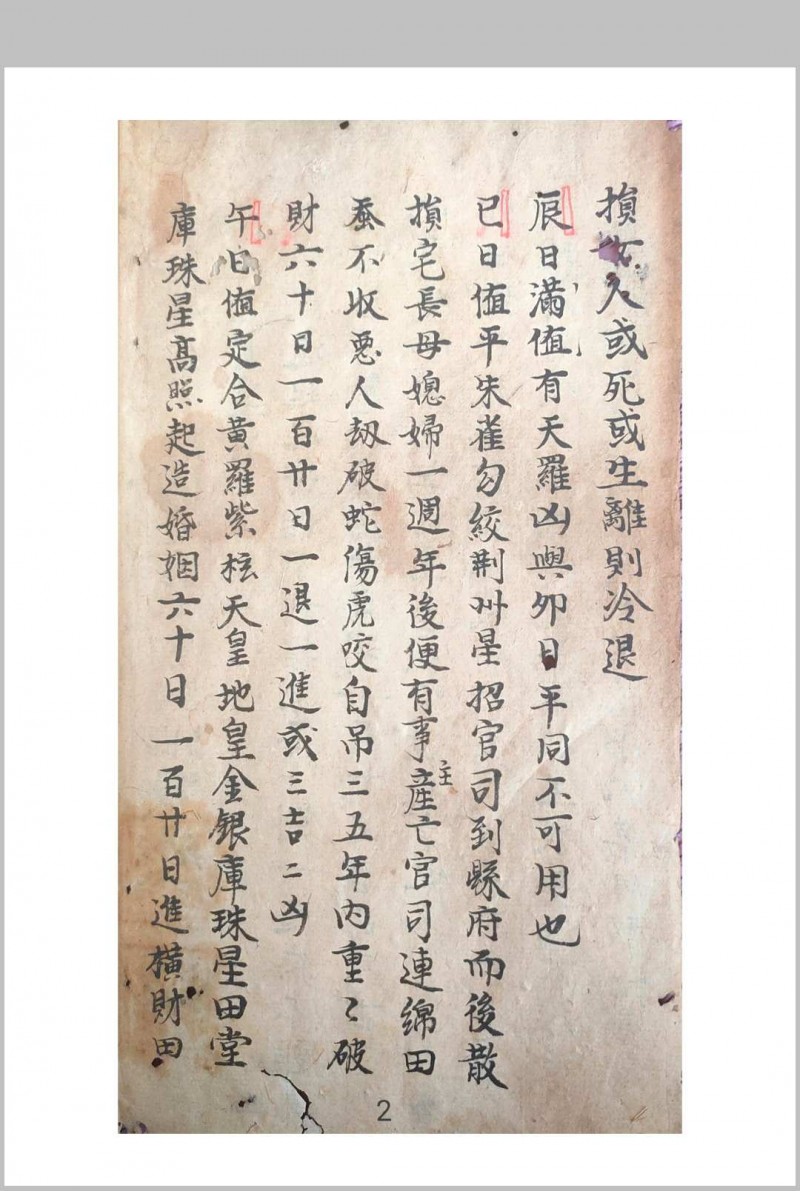 損女人或死或生離則冷退
辰日滿值有天羅凶與卯日平同不可用也
巳日值平朱雀勾絞荆州星招官司到縣府而後散
損宅長母媳婦一週年後便有事主產亡官司連綿田
蚕不收惡人刼破蛇傷虎咬自吊三五年內重〻破
財六十日一百廿日一退一進或三吉二凶
午日值定合黃羅紫柆天皇地皇金銀庫珠星田堂
庫珠星高照起造婚姻六十日一百廿日進横財田
2